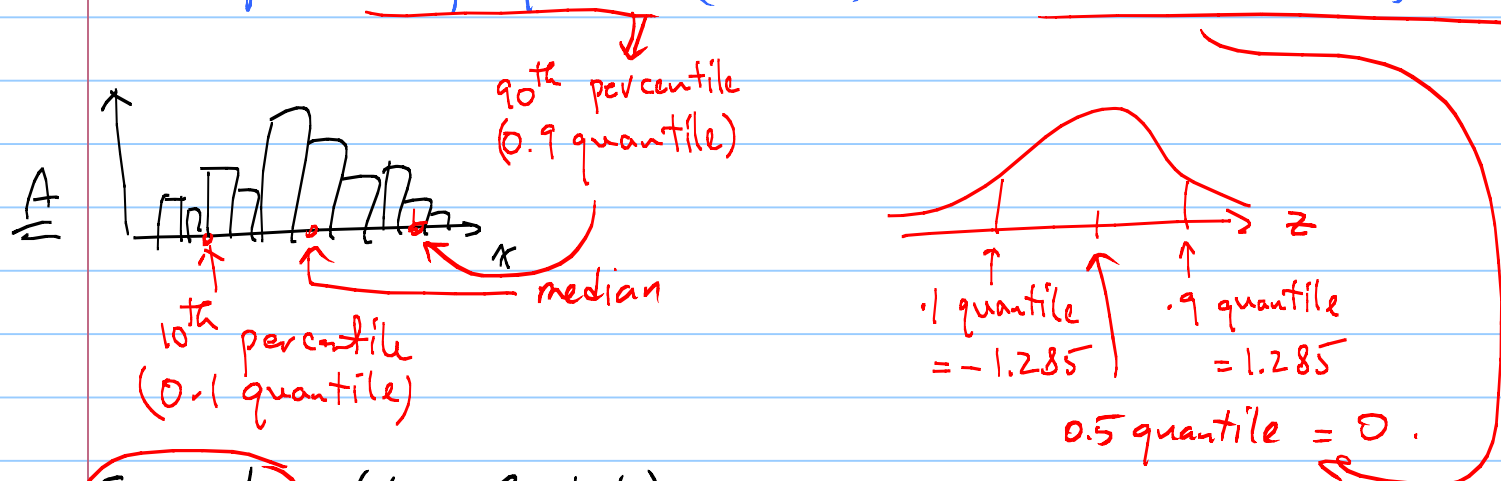 90th percentile
(0.9 quantile)
A
x
z
median
10th percentile
(0.1 quantile)
.1 quantile
= -1.285
.9 quantile
= 1.285
0.5 quantile = 0.